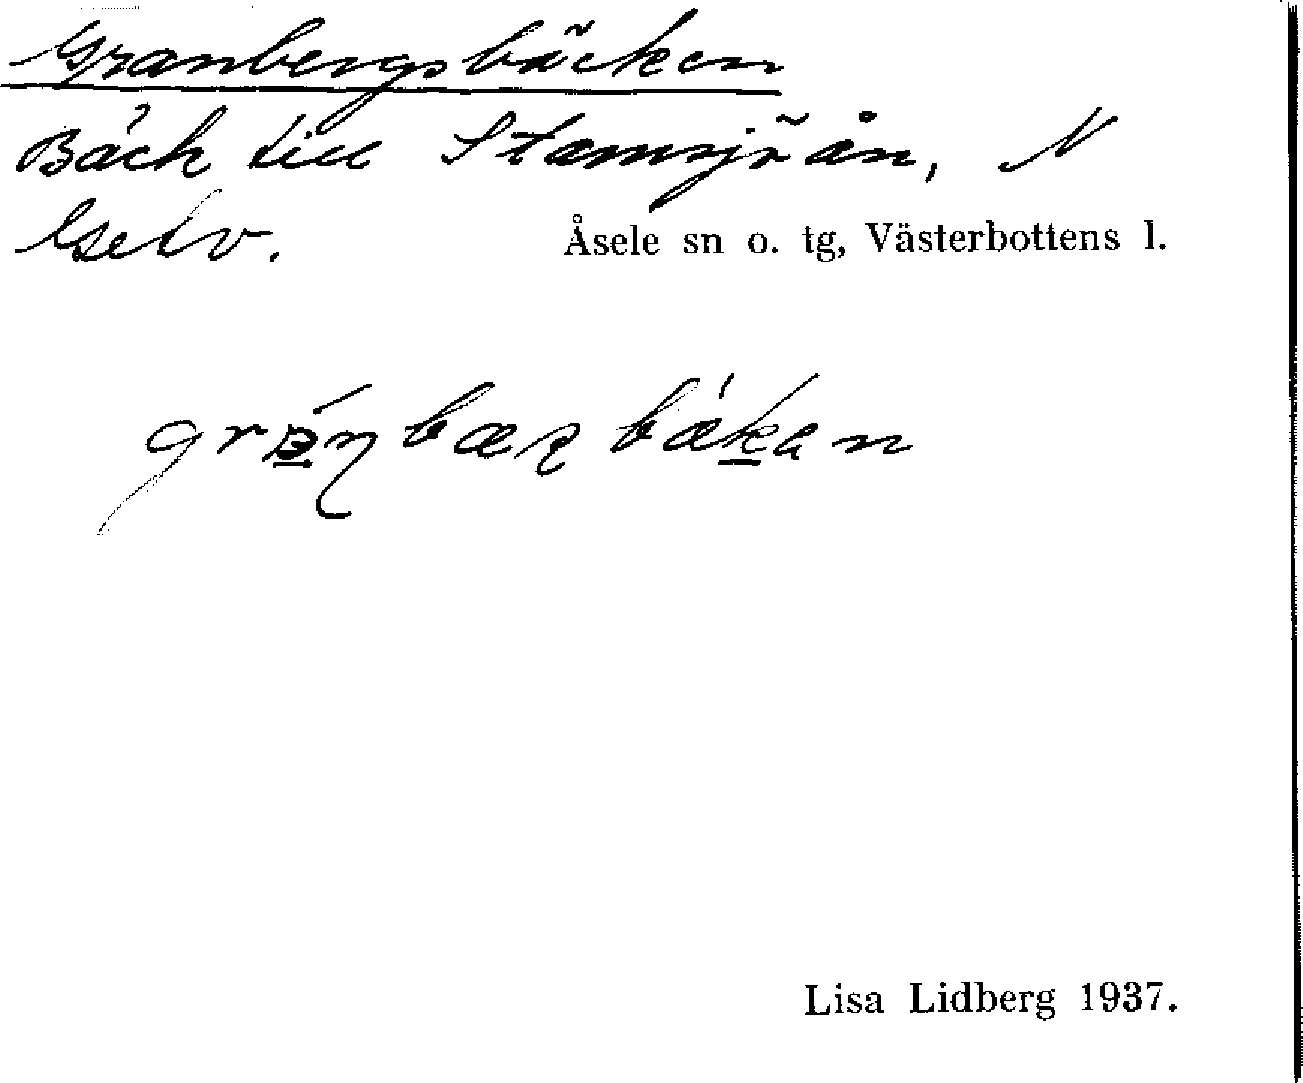 Granbergsbäcken
Bäck till Stamsjöån, N
Gelv.
Åsele sn o. tg, Västerbottens l.
Lisa Lidberg 1937.